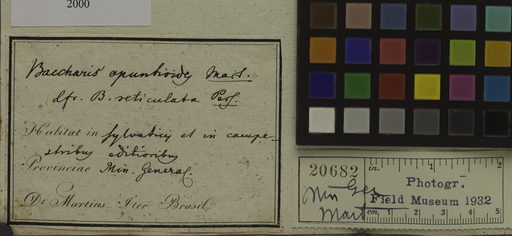 2000
Baccharis opuntioides Mart.
cfr. B. reticulata Pers.
Habitat in sylvaticis et in campe-
stribus editioribus
Provinciae Min. Generaes.
Dr Martius. Iter Brasil.
20682 in. 1 2
Photogr.
Min Ger Field Museum 1932
Mart cm 1 2 3 4 5